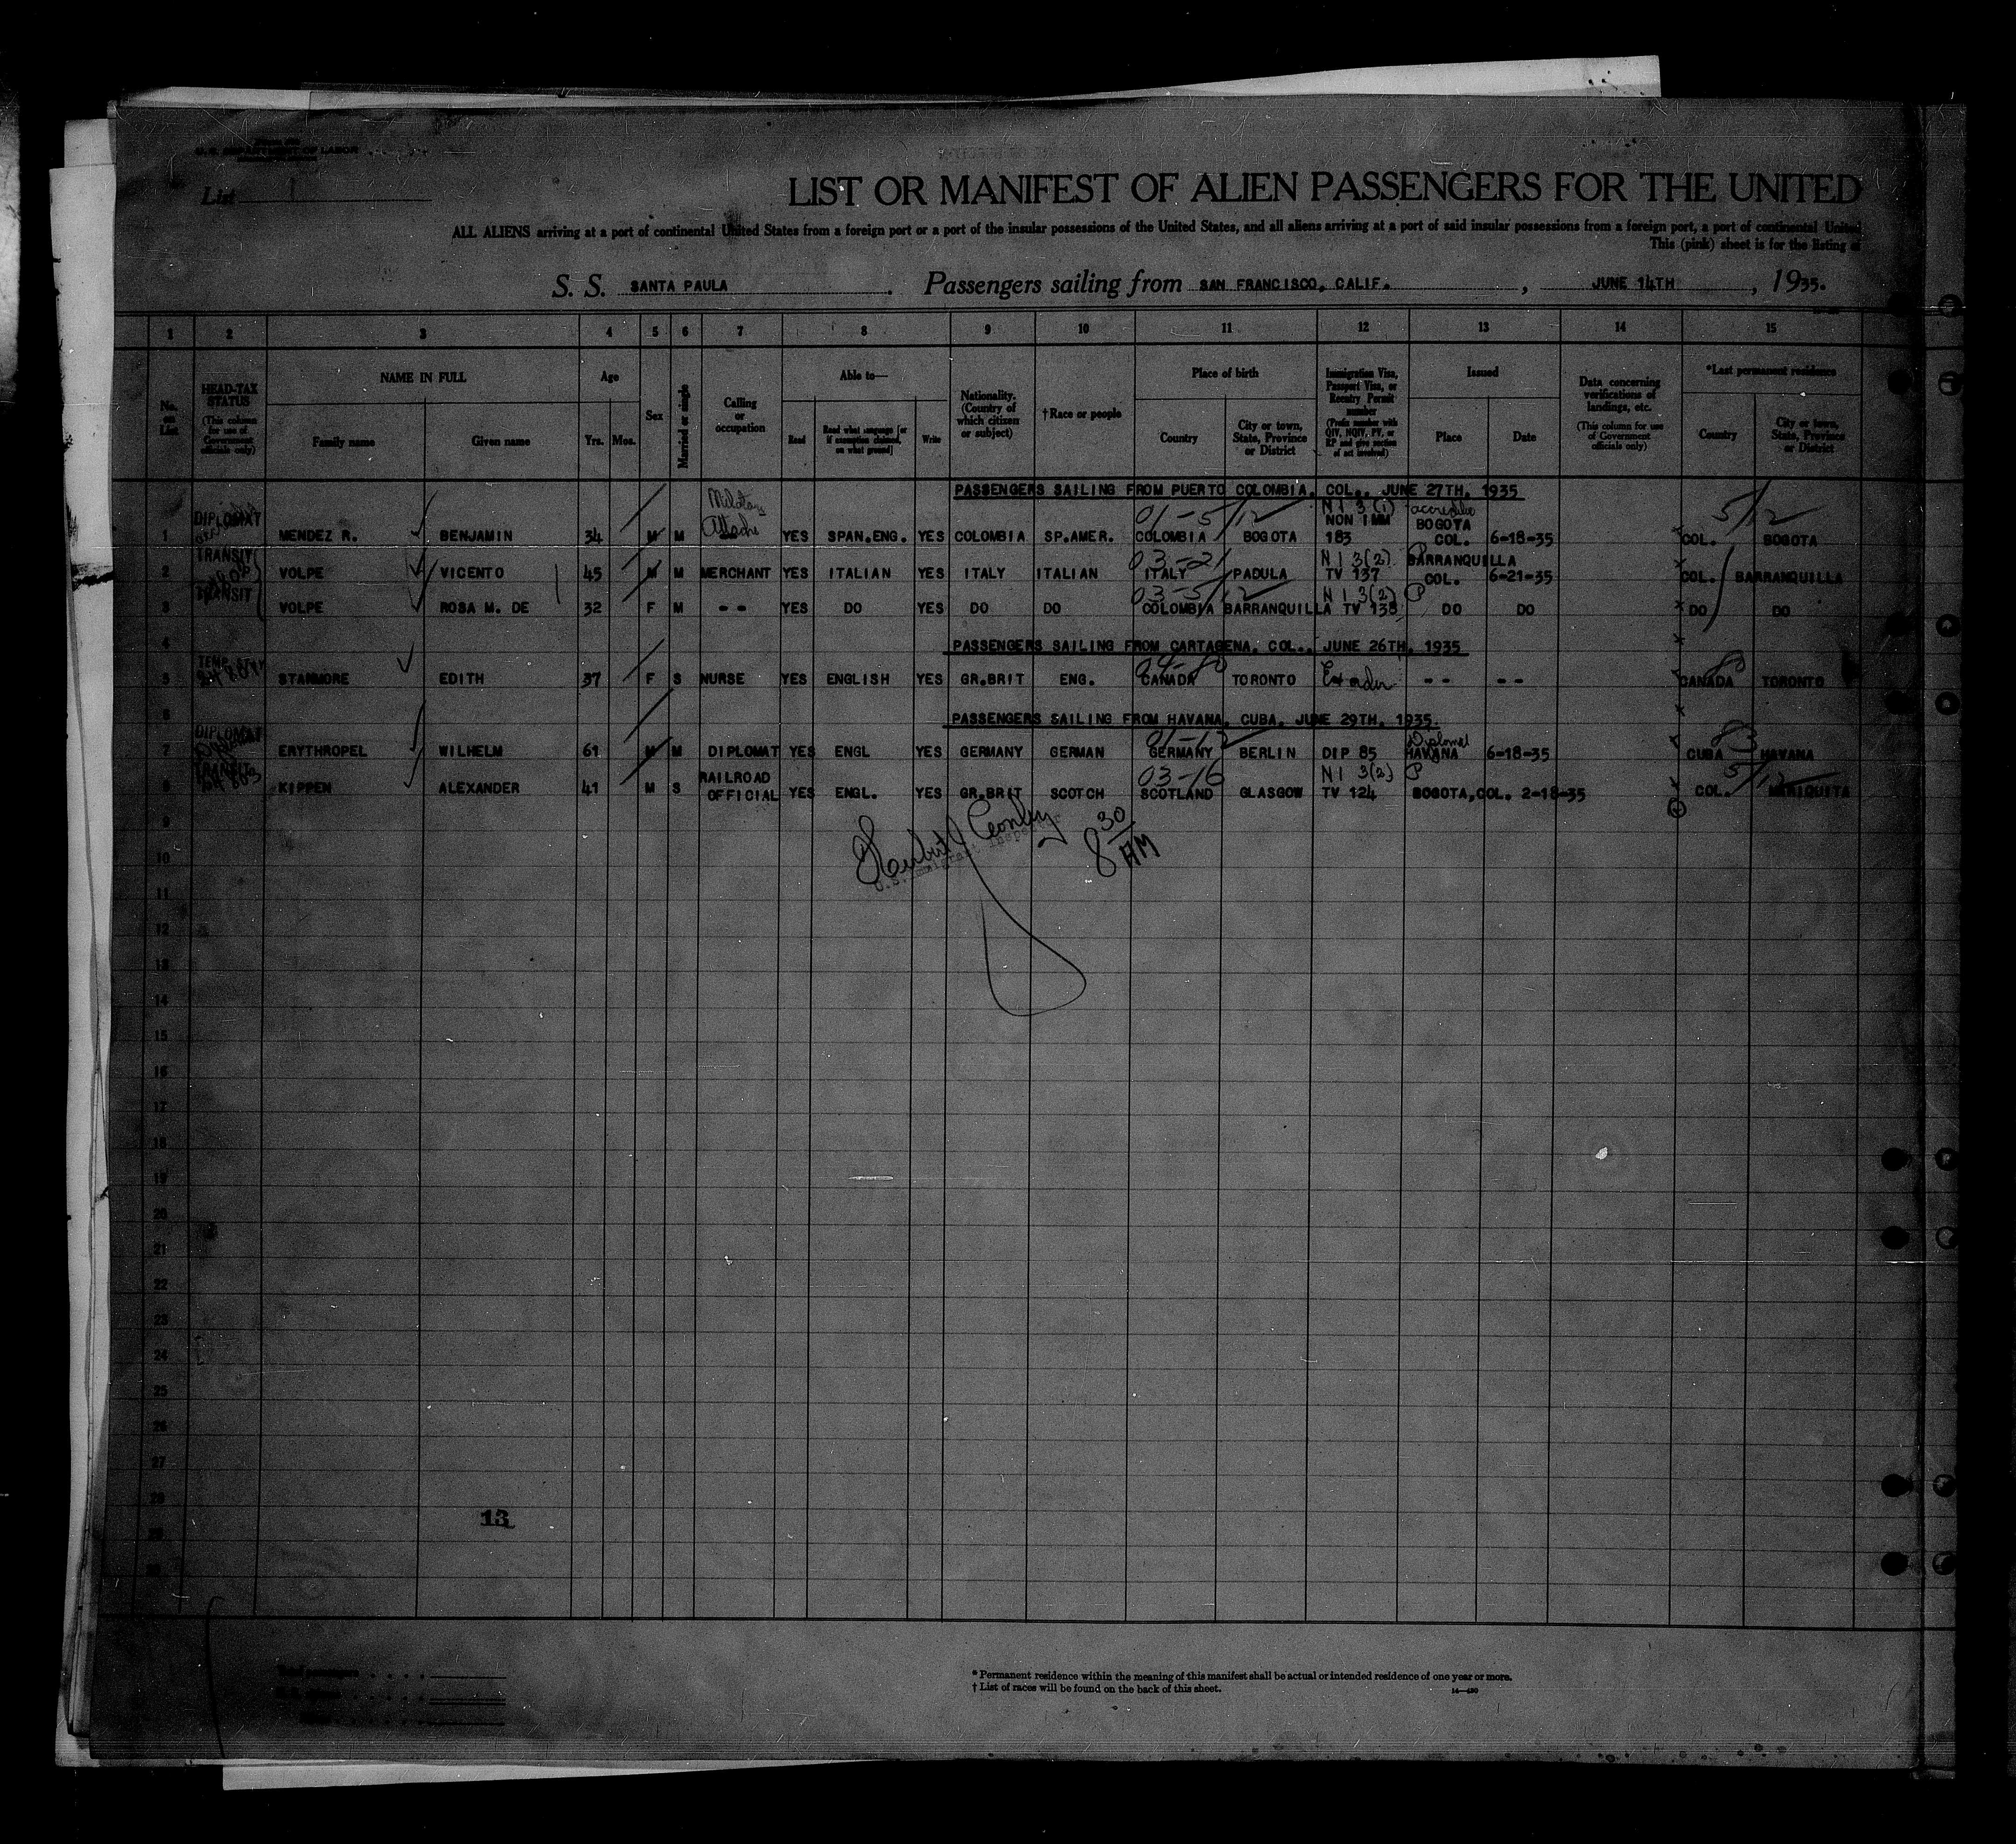 U.S. DEPARTMENT OF LABOR
List 1
LIST OR MANIFEST OF ALIEN PASSENGERS FOR THE UNITED
ALL ALIENS arriving at a port of continental United States from a foreign port or a port of the insular possessions of the United States, and all aliens arriving at a port of said insular possessions from a foreign port, a port of continental United
This (pink) sheet is for the listing of
S. S. SANTA PAULA. Passengers sailing from SAN FRANCISCO, CALIF., JUNE 14TH, 1935.
1 2 3 4 5 6 7 8 9 10 11 12 13 14 15
No. on List
HEAD-TAX STATUS (This column for use of Government officials only)
NAME IN FULL Family name Given name
Age Yrs. Mos.
Sex
Married or single
Calling or occupation
Able to— Read Read what language [or if exemption claimed, on what ground] Write
Nationality. (Country of which citizen or subject)
†Race or people
Place of birth Country City or town, State, Province or District
Immigration Visa, Passport Visa, or Reentry Permit number (Prefix number with QIV, NQIV, PV, or RP and give section of act involved)
Issued Place Date
Data concerning verifications of landings, etc. (This column for use of Government officials only)
*Last permanent residence Country City or town, State, Province or District
PASSENGERS SAILING FROM PUERTO COLOMBIA, COL., JUNE 27TH, 1935
Military Attache 01-5/12 N I 3(1) 5/12
1 DIPLOMAT MENDEZ R. BENJAMIN 34 M M YES SPAN.ENG. YES COLOMBIA SP.AMER. COLOMBIA BOGOTA NON IMM 183 BOGOTA COL. 6-18-35 COL. BOGOTA
03-21 N I 3(2) P
2 TRANSIT VOLPE VICENTO 45 M M MERCHANT YES ITALIAN YES ITALY ITALIAN ITALY PADULA TV 137 BARRANQUILLA COL. 6-21-35 COL. BARRANQUILLA
03-5/12 N I 3(2) P
3 TRANSIT VOLPE ROSA M. DE 32 F M -- YES DO YES DO DO COLOMBIA BARRANQUILLA TV 138 DO DO DO DO
4 PASSENGERS SAILING FROM CARTAGENA, COL., JUNE 26TH, 1935
04-80 80
5 STANMORE EDITH 37 F S NURSE YES ENGLISH YES GR.BRIT ENG. CANADA TORONTO -- -- CANADA TORONTO
6 PASSENGERS SAILING FROM HAVANA, CUBA, JUNE 29TH, 1935.
01-12 Diplomat 83
7 DIPLOMAT ERYTHROPEL WILHELM 61 M M DIPLOMAT YES ENGL YES GERMANY GERMAN GERMANY BERLIN DIP 85 HAVANA 6-18-35 CUBA HAVANA
03-16 N I 3(2) P 5/12
8 TRANSIT KIPPEN ALEXANDER 41 M S RAILROAD OFFICIAL YES ENGL. YES GR.BRIT SCOTCH SCOTLAND GLASGOW TV 124 BOGOTA,COL. 2-18-35 COL. MARIQUITA
9
U.S. Immigrant Inspector
8 30 AM
10
11
12
13
14
15
16
17
18
19
20
21
22
23
24
25
26
27
28
29
30
13
* Permanent residence within the meaning of this manifest shall be actual or intended residence of one year or more.
† List of races will be found on the back of this sheet.